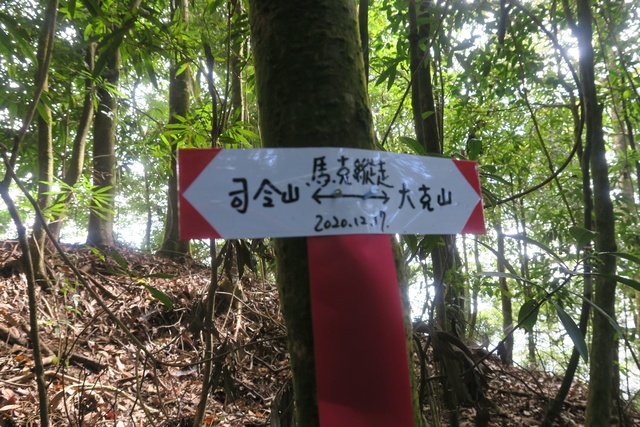 馬克縱走
司令山 ←→ 大克山
2020.12.17.